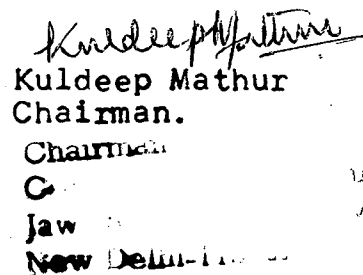 Kuldeep Mathur
Kuldeep Mathur
Chairman.
Chairman
New Delhi